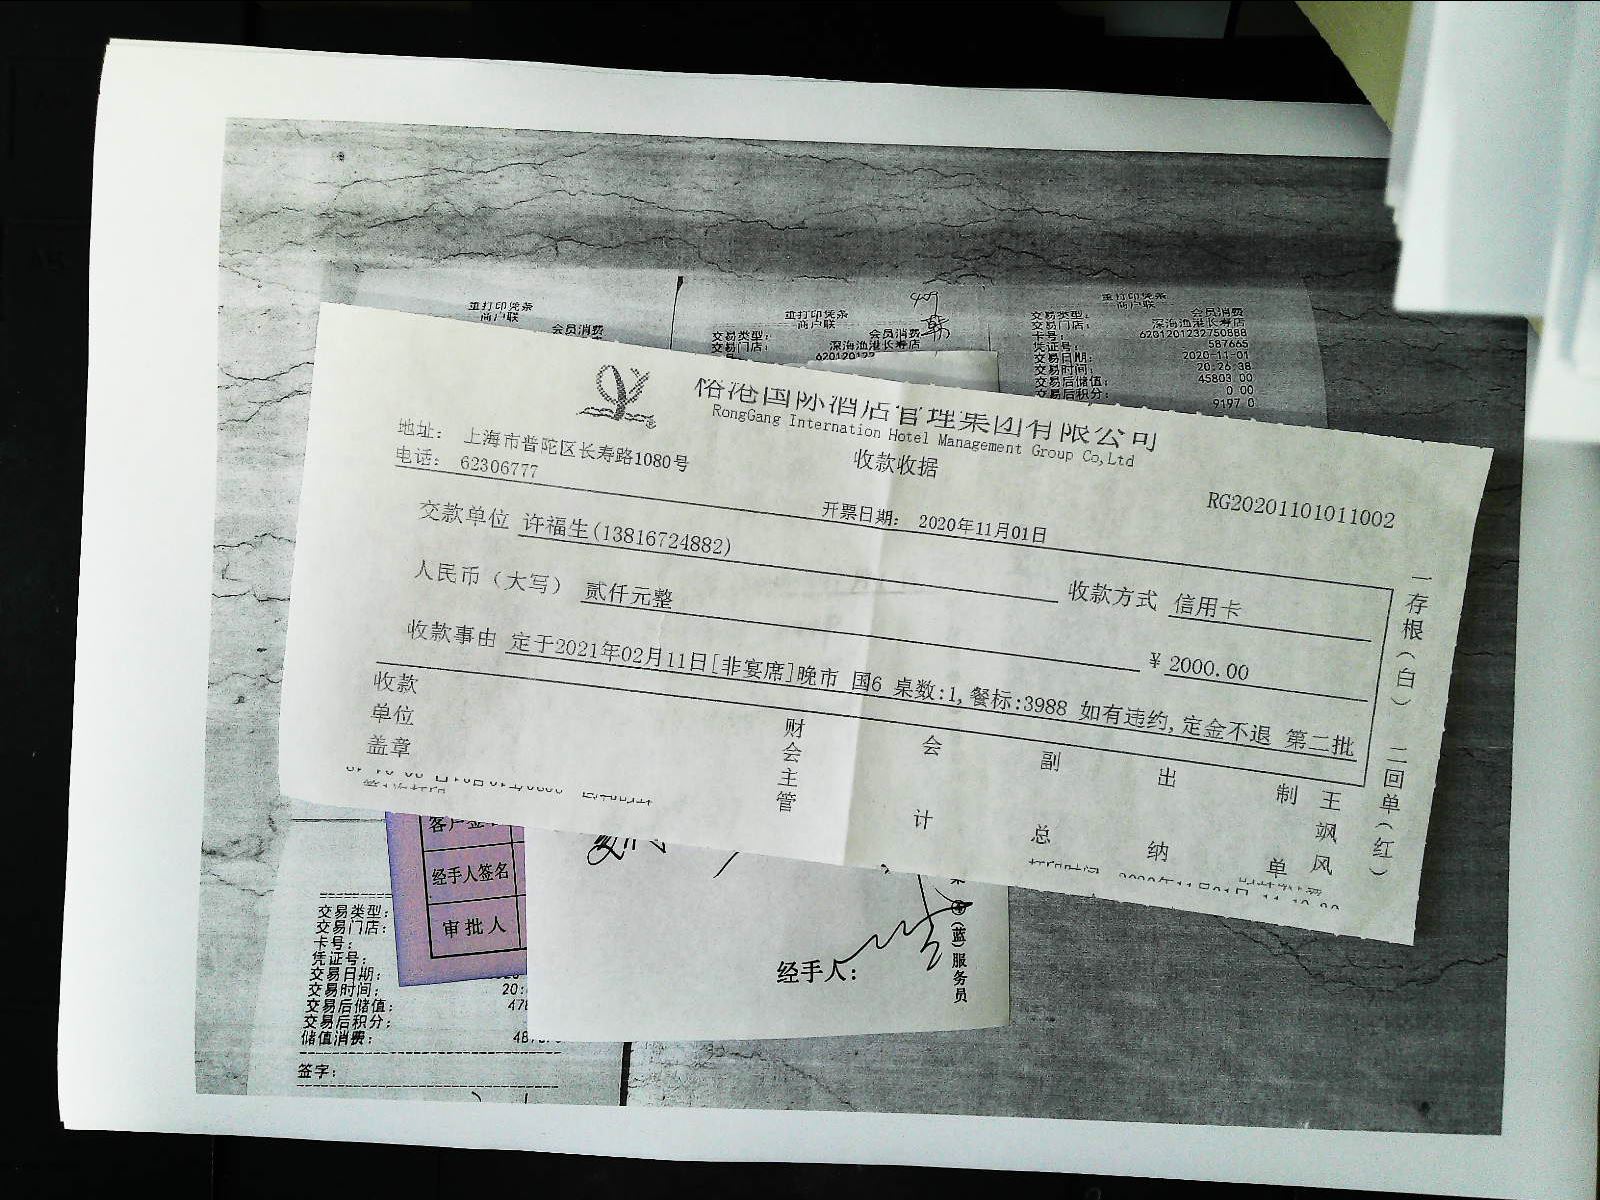 重打印凭条
商户联
会员消费
重打印凭条
商户联
交易类型: 会员消费
交易门店: 深海渔港长寿店
重打印凭条
商户联
交易类型: 会员消费
交易门店: 深海渔港长寿店
卡号: 6201201232750888
凭证号: 587665
交易日期: 2020-11-01
交易时间: 20:26:38
交易后储值: 45803.00
交易后积分: 0.00
9197.0
国际酒店管理集团有限公司
RongGang International Hotel Management Group Co,Ltd
收款收据
地址: 上海市普陀区长寿路1080号
电话: 62306777
RG20201101011002
开票日期: 2020年11月01日
交款单位 许福生(13816724882)
收款方式 信用卡
人民币（大写） 贰仟元整
¥ 2000.00
收款事由 定于2021年02月11日[非宴席]晚市 国6 桌数:1,餐标:3988 如有违约,定金不退 第二批
收款单位盖章
财会主管
会计
副总
出纳
制单
王飒风
一存根(白) 二回单(红)
经手人签名
审批人
经手人:
(蓝)服务员
交易类型:
交易门店:
卡号:
凭证号:
交易日期:
交易时间: 20:
交易后储值:
交易后积分:
储值消费:
签字: